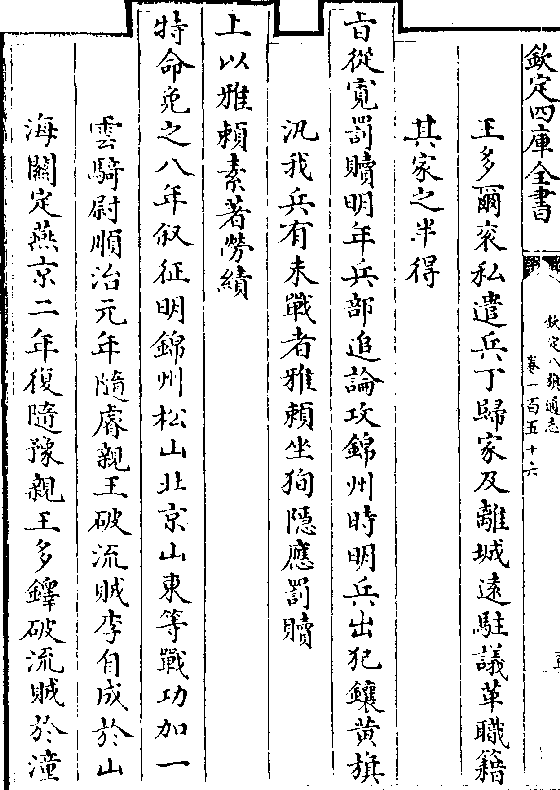 欽定四庫全書
欽定八旗通志
卷一百五十六
王多爾衮私遣兵丁歸家及離城遠駐議革職籍
其家之半得
旨從寛罰贖明年兵部追論攻錦州時明兵出犯鑲黄旗
汛我兵有未戰者雅頼坐狥隱應罰贖
上以雅頼素著勞績
特命免之八年叙征明錦州松山北京山東等戰功加一
雲騎尉順治元年隨睿親王破流賊李自成於山
海闗定燕京二年復隨豫親王多鐸破流賊於潼